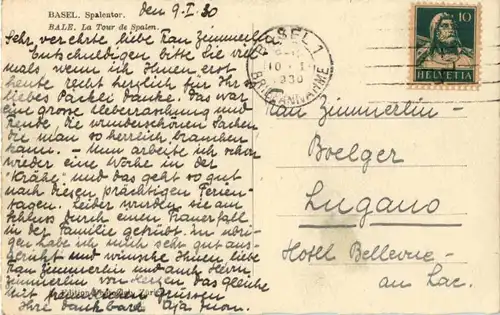 BASEL. Spalentor.
BALE. La Tour de Spalen.
den 9. I. 30
Sehr verehrte, liebe Frau Zimmerlin
Entschuldigen bitte Sie viel-
mals wenn ich Ihnen erst
heute recht herzlich für Ihr
liebes Päckli danke. Das war
eine grosse Ueberraschung und
Freude, die wunderschönen Sachen
die man so herrlich brauchen
kann. - Nun arbeite ich schon
wieder eine Woche in der
"Krähe" und das geht so gut
nach diesen prächtigen Ferien-
tagen. Leider wurden sie am
Schluss durch einen Trauerfall
in der Familie getrübt. Im übri-
gen habe ich mich sehr gut aus-
geruht und wünsche Ihnen liebe
Frau Zimmerlin und auch Herrn
Zimmerlin von Herzen das gleiche
Mit freundlichen Grüssen
Ihre dankbare
BASEL 1
10. I.
1930
BRIEFANNAHME
10
HELVETIA
Frau Zimmerlin-
Boelger
Lugano
Hotel Bellevue-
au Lac.